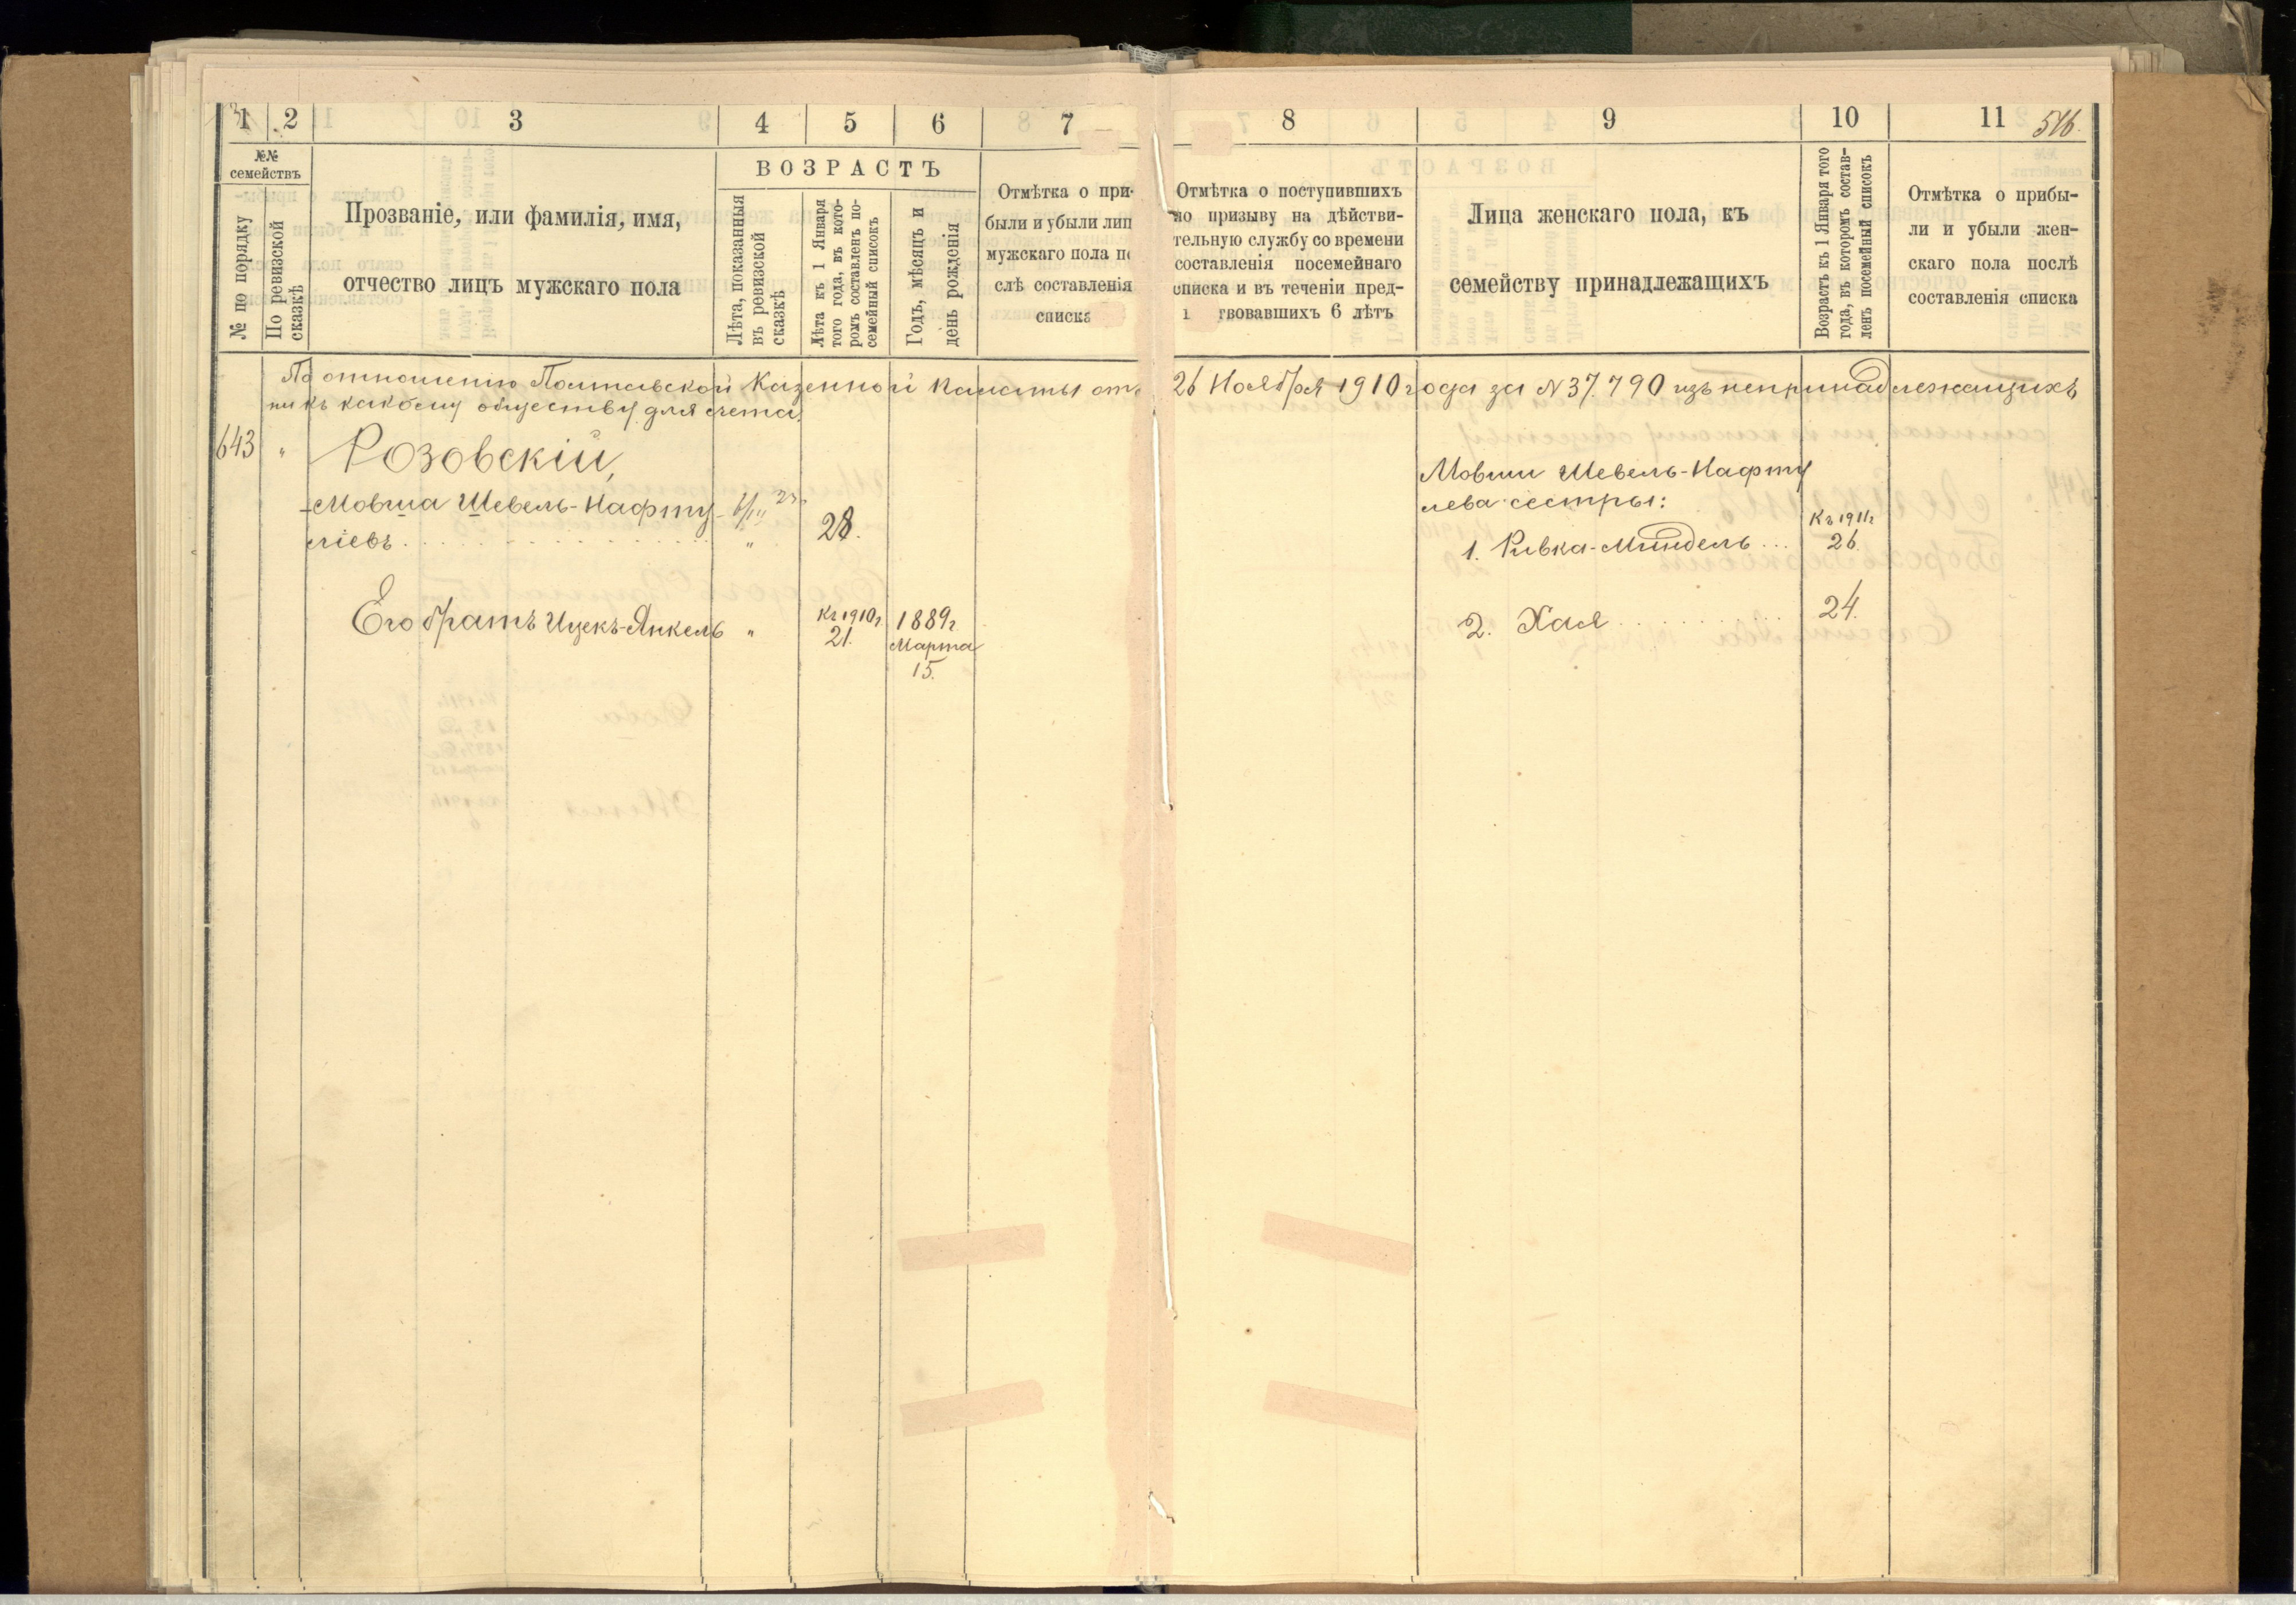 1 2 3 4 5 6 7 8 9 10 11 516.
№№ семействъ
№ по порядку
По ревизской сказкѣ
Прозваніе, или фамилія, имя,
отчество лицъ мужскаго пола
ВОЗРАСТЪ
Лѣта, показанныя
въ ревизской
сказкѣ
Лѣта къ 1 Января
того года, въ кото-
ромъ составленъ по-
семейный списокъ
Годъ, мѣсяцъ и
день рожденія
Отмѣтка о при-
были и убыли лиц
мужскаго пола по
слѣ составленія
списка
Отмѣтка о поступившихъ
по призыву на дѣйстви-
тельную службу со времени
составленія посемейнаго
списка и въ теченіи пред-
твовавшихъ 6 лѣтъ
Лица женскаго пола, къ
семейству принадлежащихъ
Возрастъ къ 1 Января того
года, въ которомъ состав-
ленъ посемейный списокъ
Отмѣтка о прибы-
ли и убыли жен-
скаго пола послѣ
составленія списка
По отношенію Полтавской Казенной Палаты отъ 26 Ноября 1910 года за № 37.790 изъ непринадлежащихъ
ни къ какому обществу для счета.
643 " Розовскій,
Мовша Шевель-Нафту-
ліевъ " 28.
Его братъ Ицекъ-Янкель " Къ 1910 г. 21. 1889 г.
Марта
15.
Мовши Шевель-Нафту
лева сестры:
1. Ривка-Миндель Къ 1911 г. 26.
2. Хая 24.